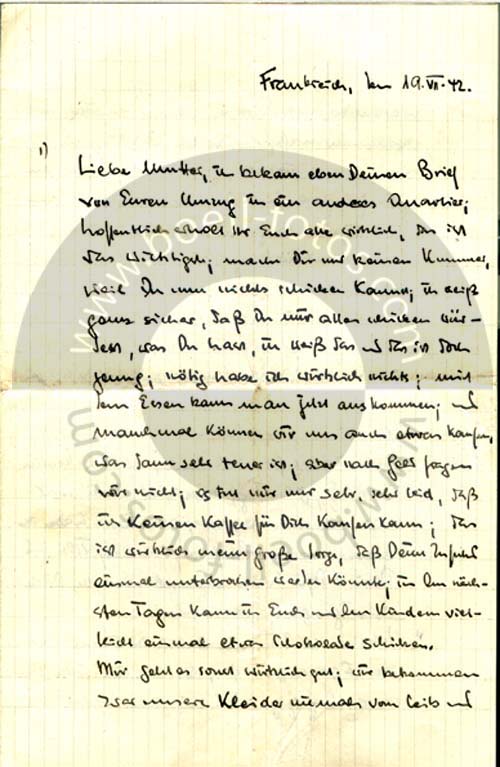 Frankreich, den 19. VII. 42.
1)
Liebe Mutter, ich bekam eben Deinen Brief
von Eurem Umzug in ein anderes Quartier;
hoffentlich erholt Ihr Euch alle wirklich, das ist
das Wichtigste; mach Dir nur keinen Kummer,
weil Du nun nichts schicken kannst; ich weiß
ganz sicher, daß Du mir alles schicken wür-
dest, was Du hast, ich weiß das und das ist doch
genug; nötig habe ich wirklich nichts; mit
dem Essen kann man jetzt auskommen; und
manchmal können wir uns auch etwas kaufen,
was dann sehr teuer ist; aber nach Geld fragen
wir nicht; es tut mir nur sehr, sehr leid, daß
ich keinen Kaffee für Dich kaufen kann; das
ist wirklich meine große Sorge, daß Deine Zufuhr
einmal unterbrochen werden könnte; in den näch-
sten Tagen kann ich Euch und den Kindern viel-
leicht einmal etwas Schokolade schicken.
Mir geht es sonst wirklich gut; wir bekommen
zwar unsere Kleider niemals vom Leib und
www.boell-fotos.com
www.boell-fotos.com